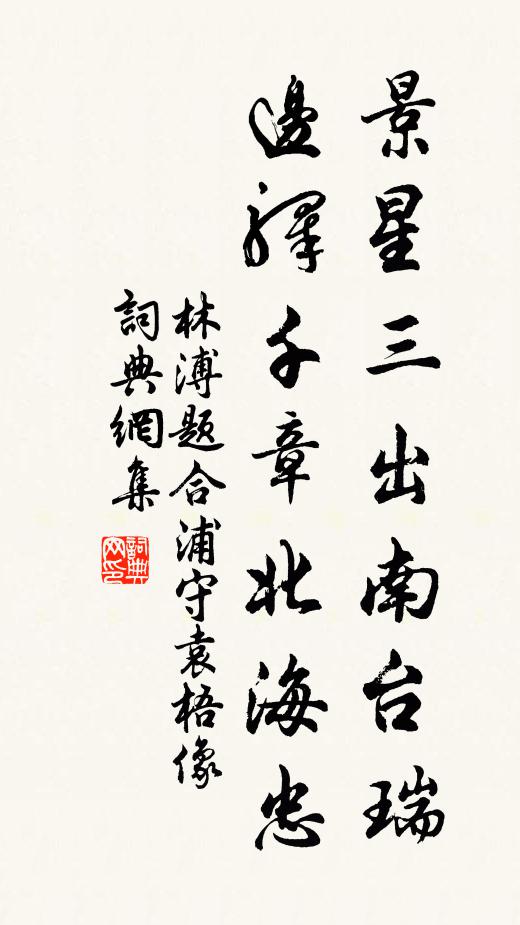 景星三出南台瑞
邊驛千章北海忠
林溥題合浦守袁梧像
詞典網集
詞典網印